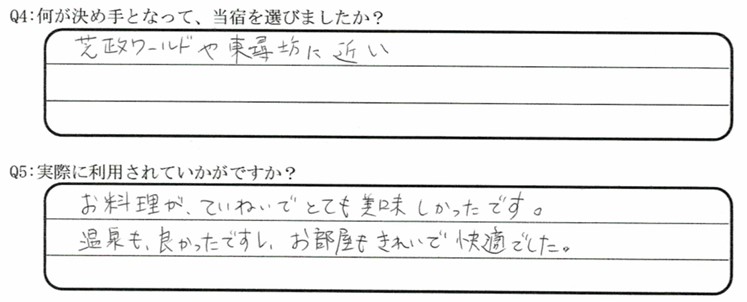 Q4:何が決め手となって、当宿を選びましたか？
芝政ワールドや東尋坊に近い
Q5:実際に利用されていかがですか？
お料理が、ていねいでとても美味しかったです。
温泉も、良かったですし、お部屋もきれいで快適でした。